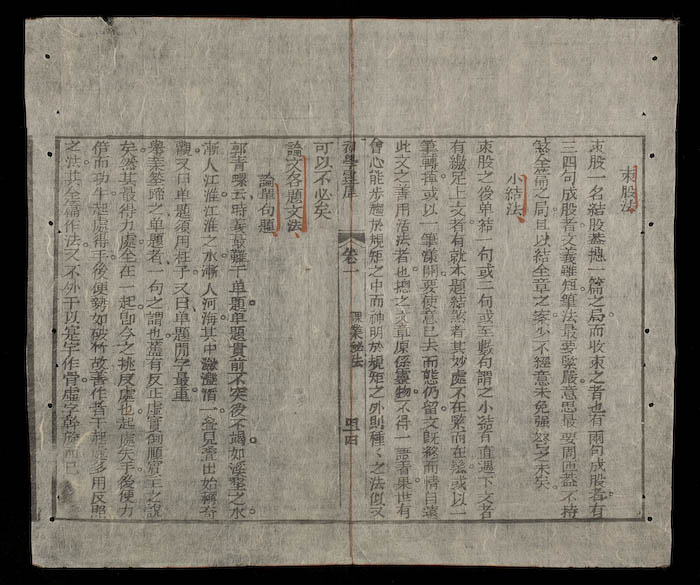 束股法
束股一名結股葢摠一篇之局而收束之者也有兩句成股者有
三四句成股者文義雖短筆法最要緊嚴意思最要周匝葢不特
繫全篇之局且以結全章之案少不經意未免強弩之末矣
小結法
束股之後单結一句或二句或至數句謂之小結有直遞下文者
有繳足上文者有就本題結煞者其妙處不在緊而在鬆或以一
筆轉掉或以一筆漾開要使意已去而態仍留文既終而情自遠
此文之善用活法者也摠之文章原係靈物不得一語看呆世有
會心能步趨於規矩之中而神明於規矩之外則種〻之法似又
初學
卷一
課業祕法
四四
可以不必矣
論文各題文法
論單句題
郭青螺云時莪最難于单題单題貫前不突後不竭如溪壑之水
漸入江淮江淮之水漸入河海其中 一叠見層出始稱奇
觀又曰单題須用柱子又曰单題閒字最重
舉業筌蹄之单題者一句之謂也葢有反正虛實倒順賓主之說
矣然其最得力處全在一起卽今之挑反處也起處失手後便力
倍而功半起處得手後便勢如破竹故善作者于起處多用反照
之法其全篇作法又不外于以寔字作骨虛字幹旋而已